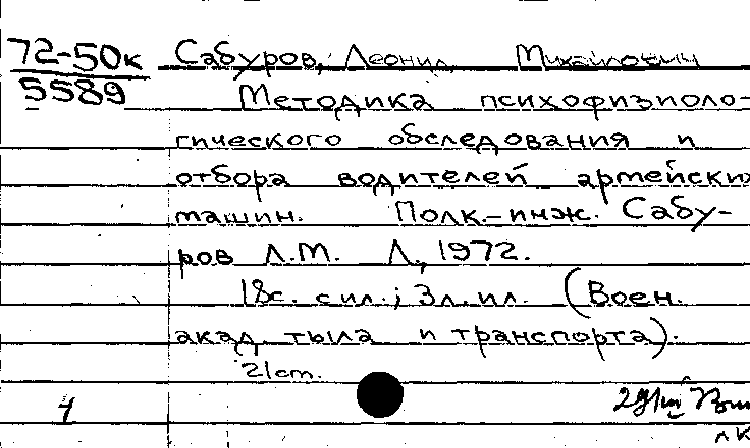 72-50к Сабуров, Леонид Михайлович
5589 Методика психофизиоло-
гического обследования и
отбора водителей армейских
машин. Полк.-инж. Сабу-
ров Л.М. Л., 1972.
18с. с ил.; 3л. ил. (Воен.
акад. тыла и транспорта).
21см.
1
лк